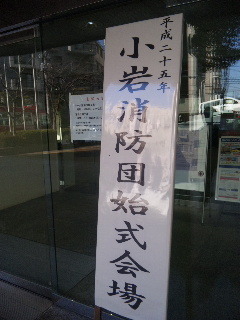 平成二十五年
小岩消防団始式会場